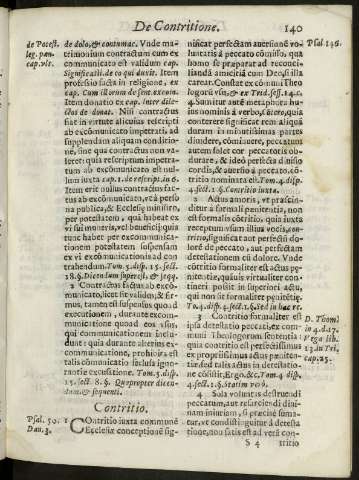 De Contritione.
140
de Potest.
leg. pœn.
cap. vlt.
de dolo, & contumac. Vnde ma-
trimonium contractum cum ex
communicato est validum cap.
Significasti. de eo qui duxit. Item
professio facta in religione,
cap. Cum illorum de sent. excom.
Item donatio ex cap. inter dile-
ctos de donat. Nisi contractus
fiat in virtute alicuius rescripti
ab excõmunicato impetrati, ad
supplendam aliquam conditio-
ne, sine qua contractus non va-
leret: quia rescriptum impetra-
tum ab excommunicato est nul
lum iuxta cap. 1. de rescript. in 6.
Item erit nullus contractus fac-
tus ab excõmunicato, vt à perso
na publica, & Ecclesiæ ministro,
per potestatem, quã habeat ex
vi sui muneris, vel beneficij; quia
tunc habet per excommunica-
tionem potestatem suspensam
ex vi excommunicationis ad con
trahendum. Tom. 5. disp. 15. sect.
18. §. Dicendum superest, & seqq.
2 Contractus factus ab excõ-
municato, licet sit validus, & fir-
mus, tamen est suspensus quoad
executionem, durante excom-
municatione quoad eos usus
qui communicationem inclu-
dunt: quia durante tali excom
municatione, prohibita est
talis communicatio seclusa igno-
rantia excusatione. Tom. 5. disp.
15. sect. 8. §. Quapropter dicen-
dum, & sequenti.
Contritio.
Psal. 50.
Dan. 3.
1 COntritio iuxta communẽ
Ecclesiæ conceptionẽ sig-
nificat perfectam auersionẽ vo-
luntatis à peccato cõmisso, qua
homo se præparat ad reconci-
liandã amicitiã cum Deo si illa
careat. Constat ex cõmuni Theo
Psal. 146.
4 Sumitur autẽ metaphora hu-
ius nominis à verbo, tero, quia
conterere significat rem aliquã
duram in minutissimas partes
diuidere, cõminuere, peccatum
autem facit cor peccatoris obdu-
rare, & ideò perfecta diuisio
cordis, & ablatio à peccato, cõ-
tritio nominata est. Tom. 4. disp.
4. sect. 1. §. Contritio iuxta.
2 Actus amoris, vt præscin-
ditur à formali detestatione, non
est formalis cõtritio, quia iuxta
receptum vsum illius vocis, con-
tritio, significat aut perfectũ do-
lorẽ de peccato, aut perfectam
detestationem cũ dolore. Vnde
cõtritio formaliter est actus pœ-
nitentiæ, quia si virtualiter con-
tineri possit in superiori actu,
qui non sit formaliter pœnitẽtiæ.
T. 4. disp. 4. sect. 1. §. Sed in hac re.
3 Contritio formaliter est
ipsa detestatio peccati, ex com-
muni Theologorum sententia:
quia contritio est perfectissimus
ex propriissimus actus pœniten-
tiæ: sed talis actus in detestatio-
ne cõsistit, Ergo, &c. Tom. 4. disp.
4. sect. 1. §. Statim verò.
D. Thom.
in 4. d. 17.
Vega lib.
13. in Tri.
cap. 25.
4 Sola voluntas destruendi
peccatum, aut resarciendi di-
uinam iniuriam, si præcisè suma-
tur, vt condistinguitur à detesta
tione, non satis est ad verã con-
S 4
tritio